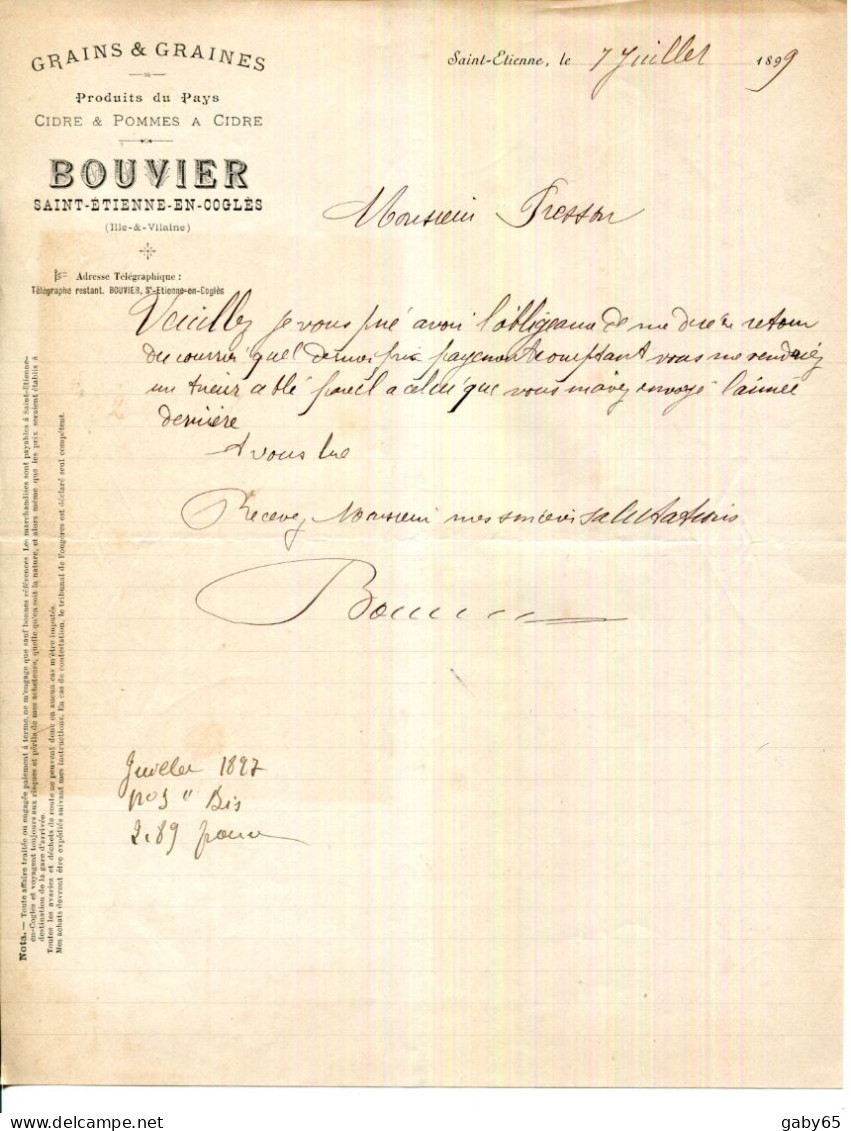 GRAINS & GRAINES
Produits du Pays
CIDRE & POMMES A CIDRE
BOUVIER
SAINT-ÉTIENNE-EN-COGLÈS
(Ille-&-Vilaine)
Adresse Télégraphique :
Télégraphe restant. BOUVIER, St-Etienne-en-Coglès
Saint-Etienne, le 7 Juillet 1899
Monsieur Presson
Veuillez je vous prié avoir l'obligeance de me dire en retour
du courrier quel dernier prix payement comptant vous me vendriez
un trieur a blé pareil a celui que vous m'avez envoyé l'année
dernière
A vous lire
Recevez Monsieur mes sincères salutations
Bouvier
Juillet 1897
No 3 " Bis
289 francs
Nota. — Toute affaire traitée ou engagée paiement à terme, ne m'engage que sauf bonnes références. Les marchandises sont payables à Saint-Etienne-
en-Coglès et voyagent toujours aux risques et périls de mes acheteurs, quelle qu'en soit la nature, et alors même que les prix seraient établis à
destination de la gare d'arrivée.
Toutes les avaries et déchets de route ne peuvent donc en aucun cas m'être imputés.
Mes achats devront être expédiés suivant mes instructions. En cas de contestation, le tribunal de Fougères est déclaré seul compétent.
gaby65